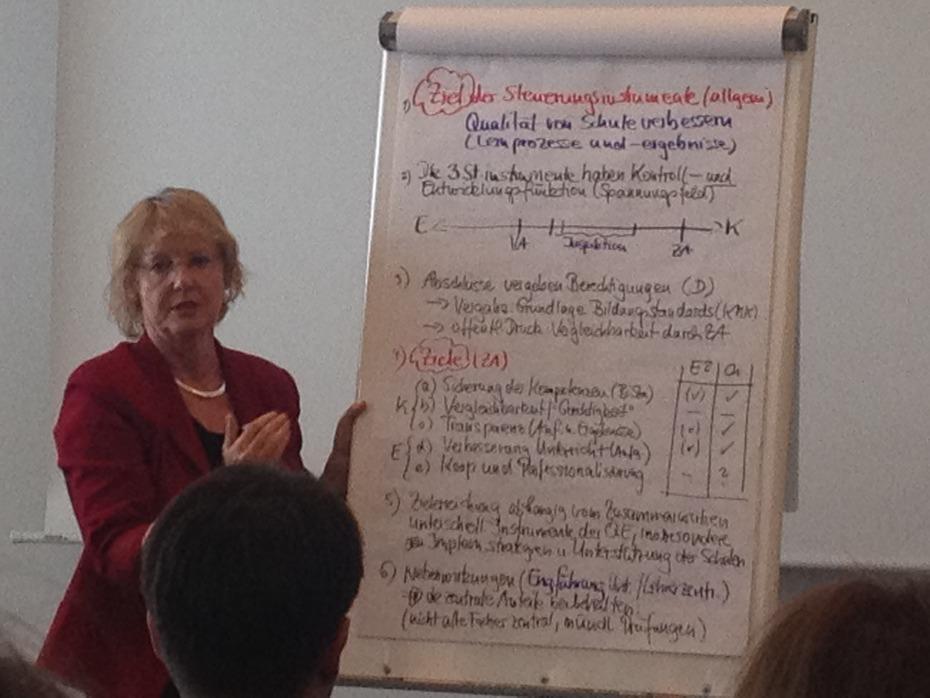 1) Ziel der Steuerungsinstrumente (allgem)
Qualität von Schule verbessern
(Lernprozesse und -ergebnisse)
2) Die 3 St.instrumente haben Kontroll- und
Entwicklungsfunktion (Spannungsfeld)
E K
VA Inspektion ZA
3) Abschlüsse vergeben Berechtigungen (D)
→ Vergabe Grundlage Bildungsstandards (KMK)
→ öffentl. Druck Vergleichbarkeit durch ZA
4) Ziele (ZA)
K
(a) Sicherung der Kompetenzen
b) Vergleichbarkeit/
c) Transparenz (Anf. u. Ergebnisse)
E
d) Verbesserung Unterricht
e) Koop und Professionalisierung
(✓) ✓
- -
(✓) ✓
(✓) ✓
- ?
5) Zielerreichung abhängig vom Zusammenwirken
unterschiedl. Instrumente der QE, insbesondere
Implem.strategien u. Unterstützung der Schulen
6) Nebenwirkungen (Engführung /Lehrerzentr.)
dezentrale Anteile beibehalten
(nicht alle Fächer zentral, mündl. Prüfungen)